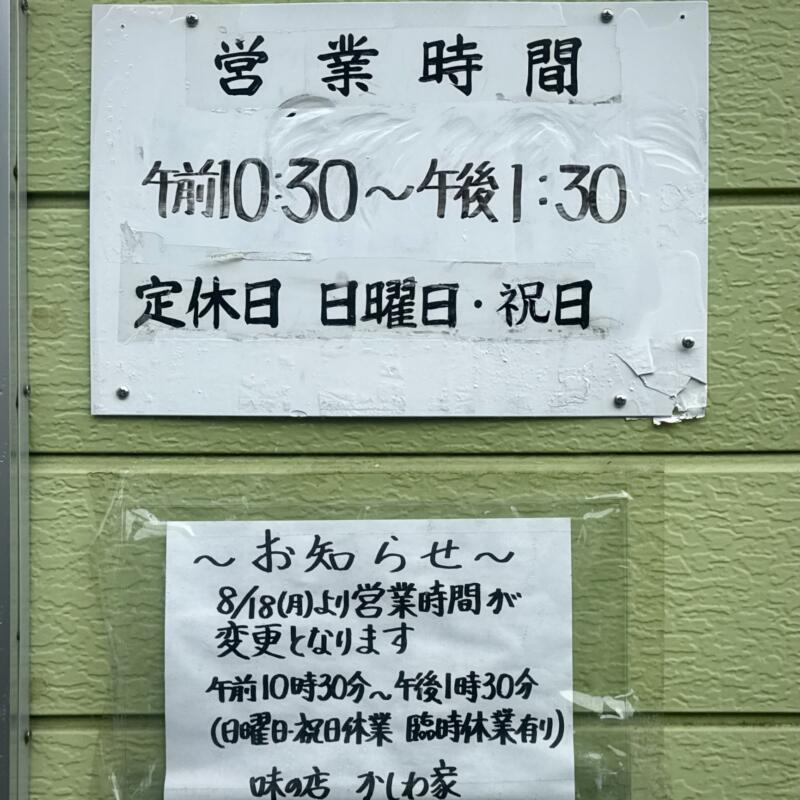 営業時間
午前10:30～午後1:30
定休日 日曜日・祝日
～お知らせ～
8/18(月)より営業時間が
変更となります
午前10時30分～午後1時30分
(日曜日・祝日休業 臨時休業有り)
味の店 かしわ家